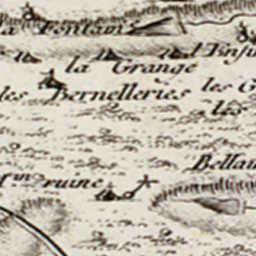 la Fontain
l'Enfu
la Grange
les Bernelleries les G
les
Bellau
f.in ruine